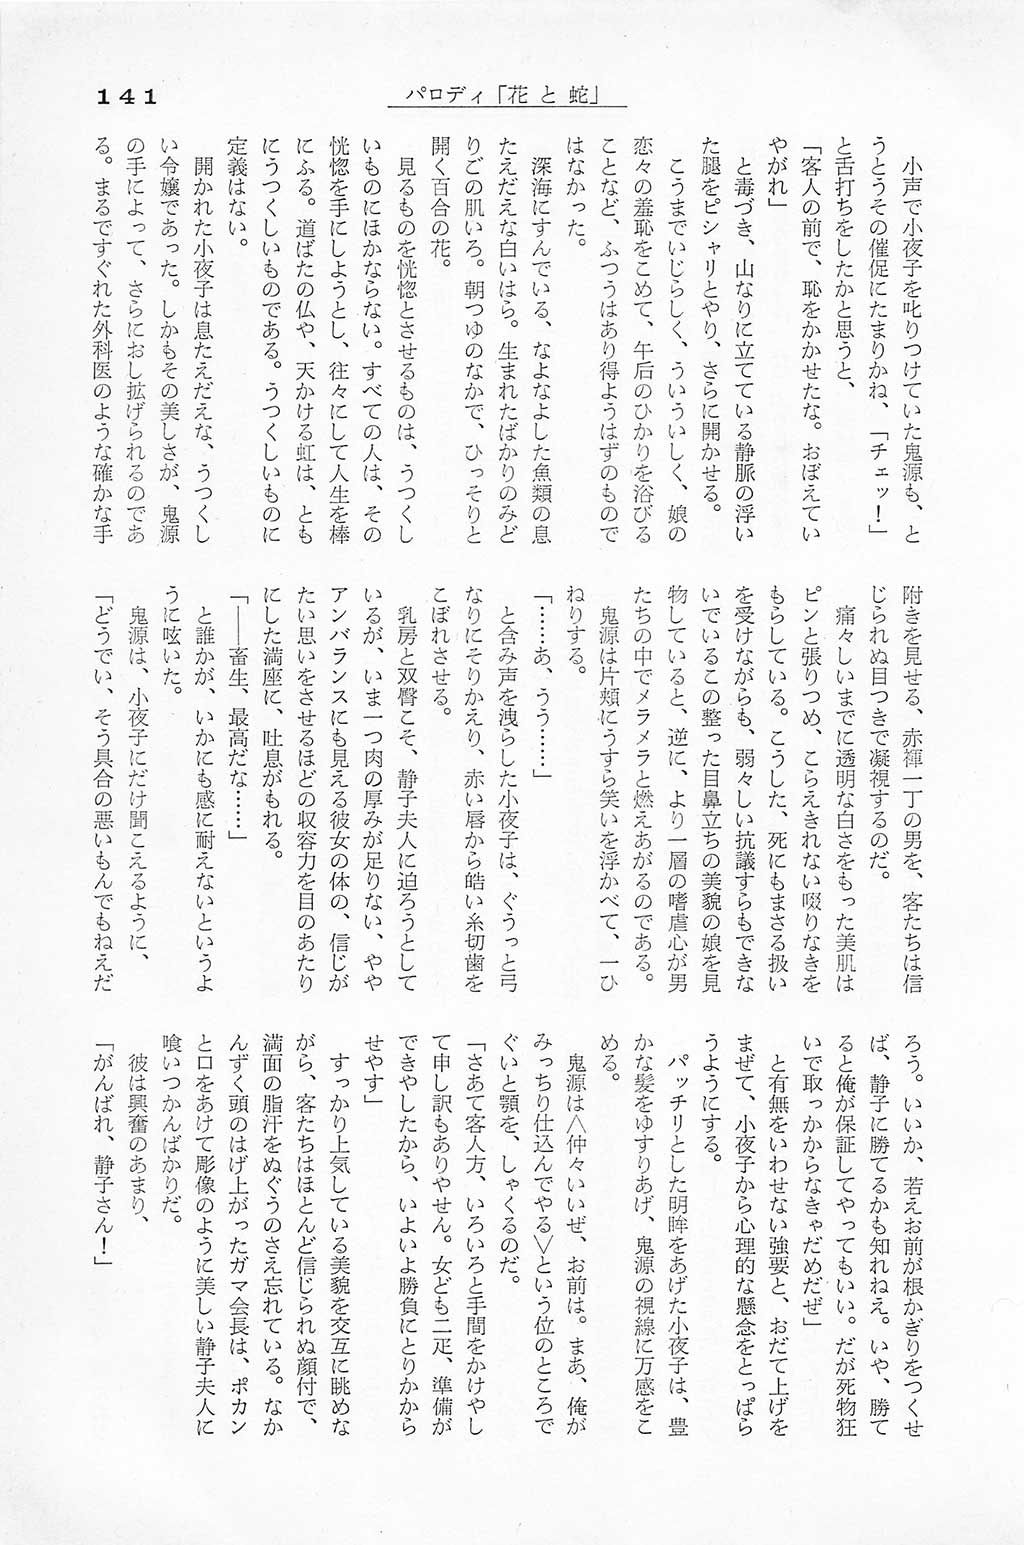 141
パロディ「花と蛇」
小声で小夜子を叱りつけていた鬼源も、と
うとうその催促にたまりかね、「チェッ！」
と舌打ちをしたかと思うと、
「客人の前で、恥をかかせたな。おぼえてい
やがれ」
と毒づき、山なりに立てている静脈の浮い
た腿をピシャリとやり、さらに開かせる。
こうまでいじらしく、ういういしく、娘の
恋々の羞恥をこめて、午后のひかりを浴びる
ことなど、ふつうはあり得ようはずのもので
はなかった。
深海にすんでいる、なよなよした魚類の息
たえだえな白いはら。生まれたばかりのみど
りごの肌いろ。朝つゆのなかで、ひっそりと
開く百合の花。
見るものを恍惚とさせるものは、うつくし
いものにほかならない。すべての人は、その
恍惚を手にしようとし、往々にして人生を棒
にふる。道ばたの仏や、天かける虹は、とも
にうつくしいものである。うつくしいものに
定義はない。
開かれた小夜子は息たえだえな、うつくし
い令嬢であった。しかもその美しさが、鬼源
の手によって、さらにおし拡げられるのであ
る。まるですぐれた外科医のような確かな手
附きを見せる、赤褌一丁の男を、客たちは信
じられぬ目つきで凝視するのだ。
痛々しいまでに透明な白さをもった美肌は
ピンと張りつめ、こらえきれない啜りなきを
もらしている。こうした、死にもまさる扱い
を受けながらも、弱々しい抗議すらもできな
いでいるこの整った目鼻立ちの美貌の娘を見
物していると、逆に、より一層の嗜虐心が男
たちの中でメラメラと燃えあがるのである。
鬼源は片頬にうすら笑いを浮かべて、一ひ
ねりする。
「……あ、うう……」
と含み声を洩らした小夜子は、ぐうっと弓
なりにそりかえり、赤い唇から皓い糸切歯を
こぼれさせる。
乳房と双臀こそ、静子夫人に迫ろうとして
いるが、いま一つ肉の厚みが足りない、やや
アンバランスにも見える彼女の体の、信じが
たい思いをさせるほどの収容力を目のあたり
にした満座に、吐息がもれる。
「――畜生、最高だな……」
と誰かが、いかにも感に耐えないというよ
うに呟いた。
鬼源は、小夜子にだけ聞こえるように、
「どうでい、そう具合の悪いもんでもねえだ
ろう。いいか、若えお前が根かぎりをつくせ
ば、静子に勝てるかも知れねえ。いや、勝て
ると俺が保証してやってもいい。だが死物狂
いで取っかからなきゃだめだぜ」
と有無をいわせない強要と、おだて上げを
まぜて、小夜子から心理的な懸念をとっぱら
うようにする。
パッチリとした明眸をあげた小夜子は、豊
かな髪をゆすりあげ、鬼源の視線に万感をこ
める。
鬼源は＜仲々いいぜ、お前は。まあ、俺が
みっちり仕込んでやる＞という位のところで
ぐいと顎を、しゃくるのだ。
「さあて客人方、いろいろと手間をかけやし
て申し訳もありやせん。女ども二疋、準備が
できやしたから、いよいよ勝負にとりかから
せやす」
すっかり上気している美貌を交互に眺めな
がら、客たちはほとんど信じられぬ顔付で、
満面の脂汗をぬぐうのさえ忘れている。なか
んずく頭のはげ上がったガマ会長は、ポカン
と口をあけて彫像のように美しい静子夫人に
喰いつかんばかりだ。
彼は興奮のあまり、
「がんばれ、静子さん！」